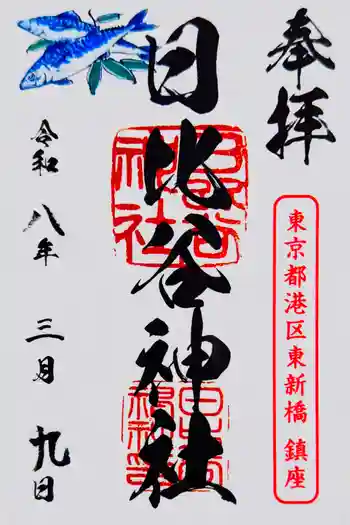 奉拝
東京都港区東新橋 鎮座
日比谷神社
日比谷神社
令和 八年 三月 九日